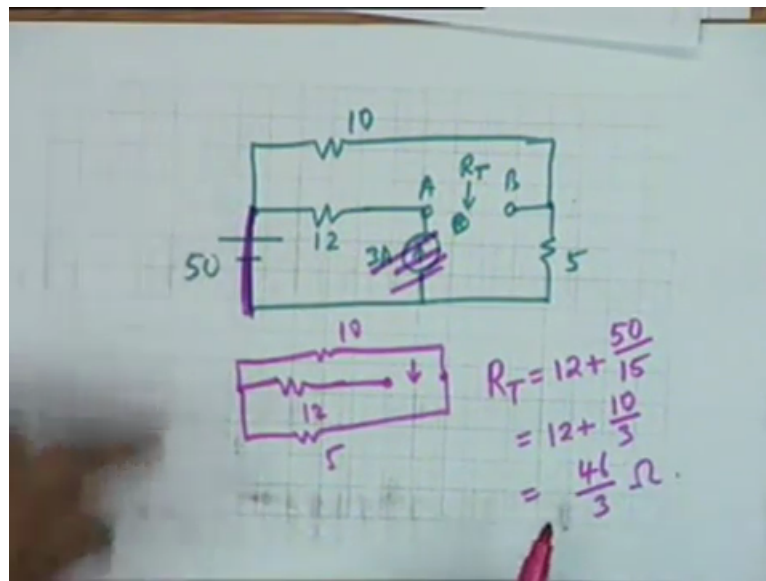 10
R_T
A
B
12
3A
50
5
10
12
5
R_T = 12 + 50/15
= 12 + 10/3
= 46/3 Ω